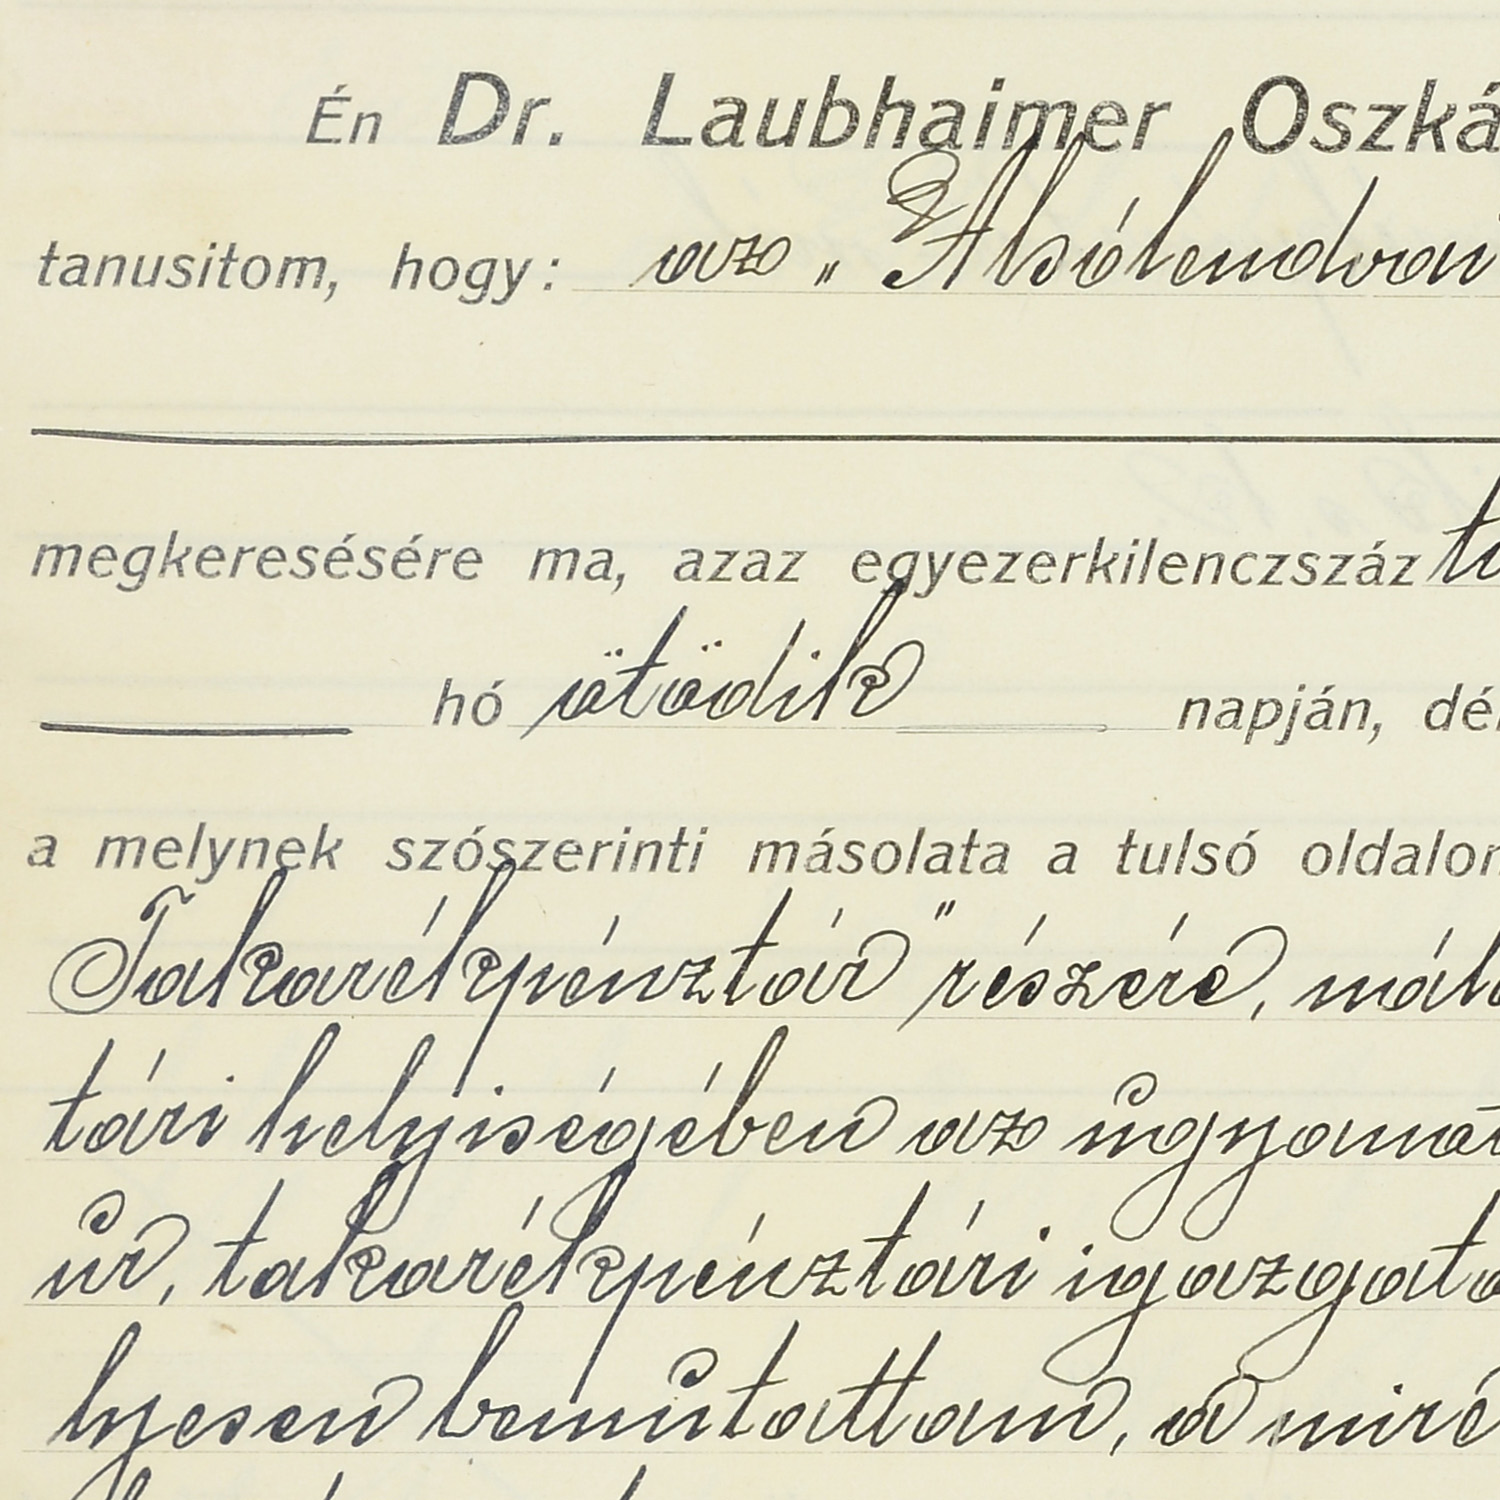 Én Dr. Laubhaimer Oszká
tanusitom, hogy: az „Alsólendvai
megkeresésére ma, azaz egyezerkilenczszáz
hó ötödik napján, dél
a melynek szószerinti másolata a tulsó oldalon
Takarékpénztár" részére,
tári helyiségében az ugyanott
úr, takarékpénztári igazgató
lyesen bemutattam, a mire